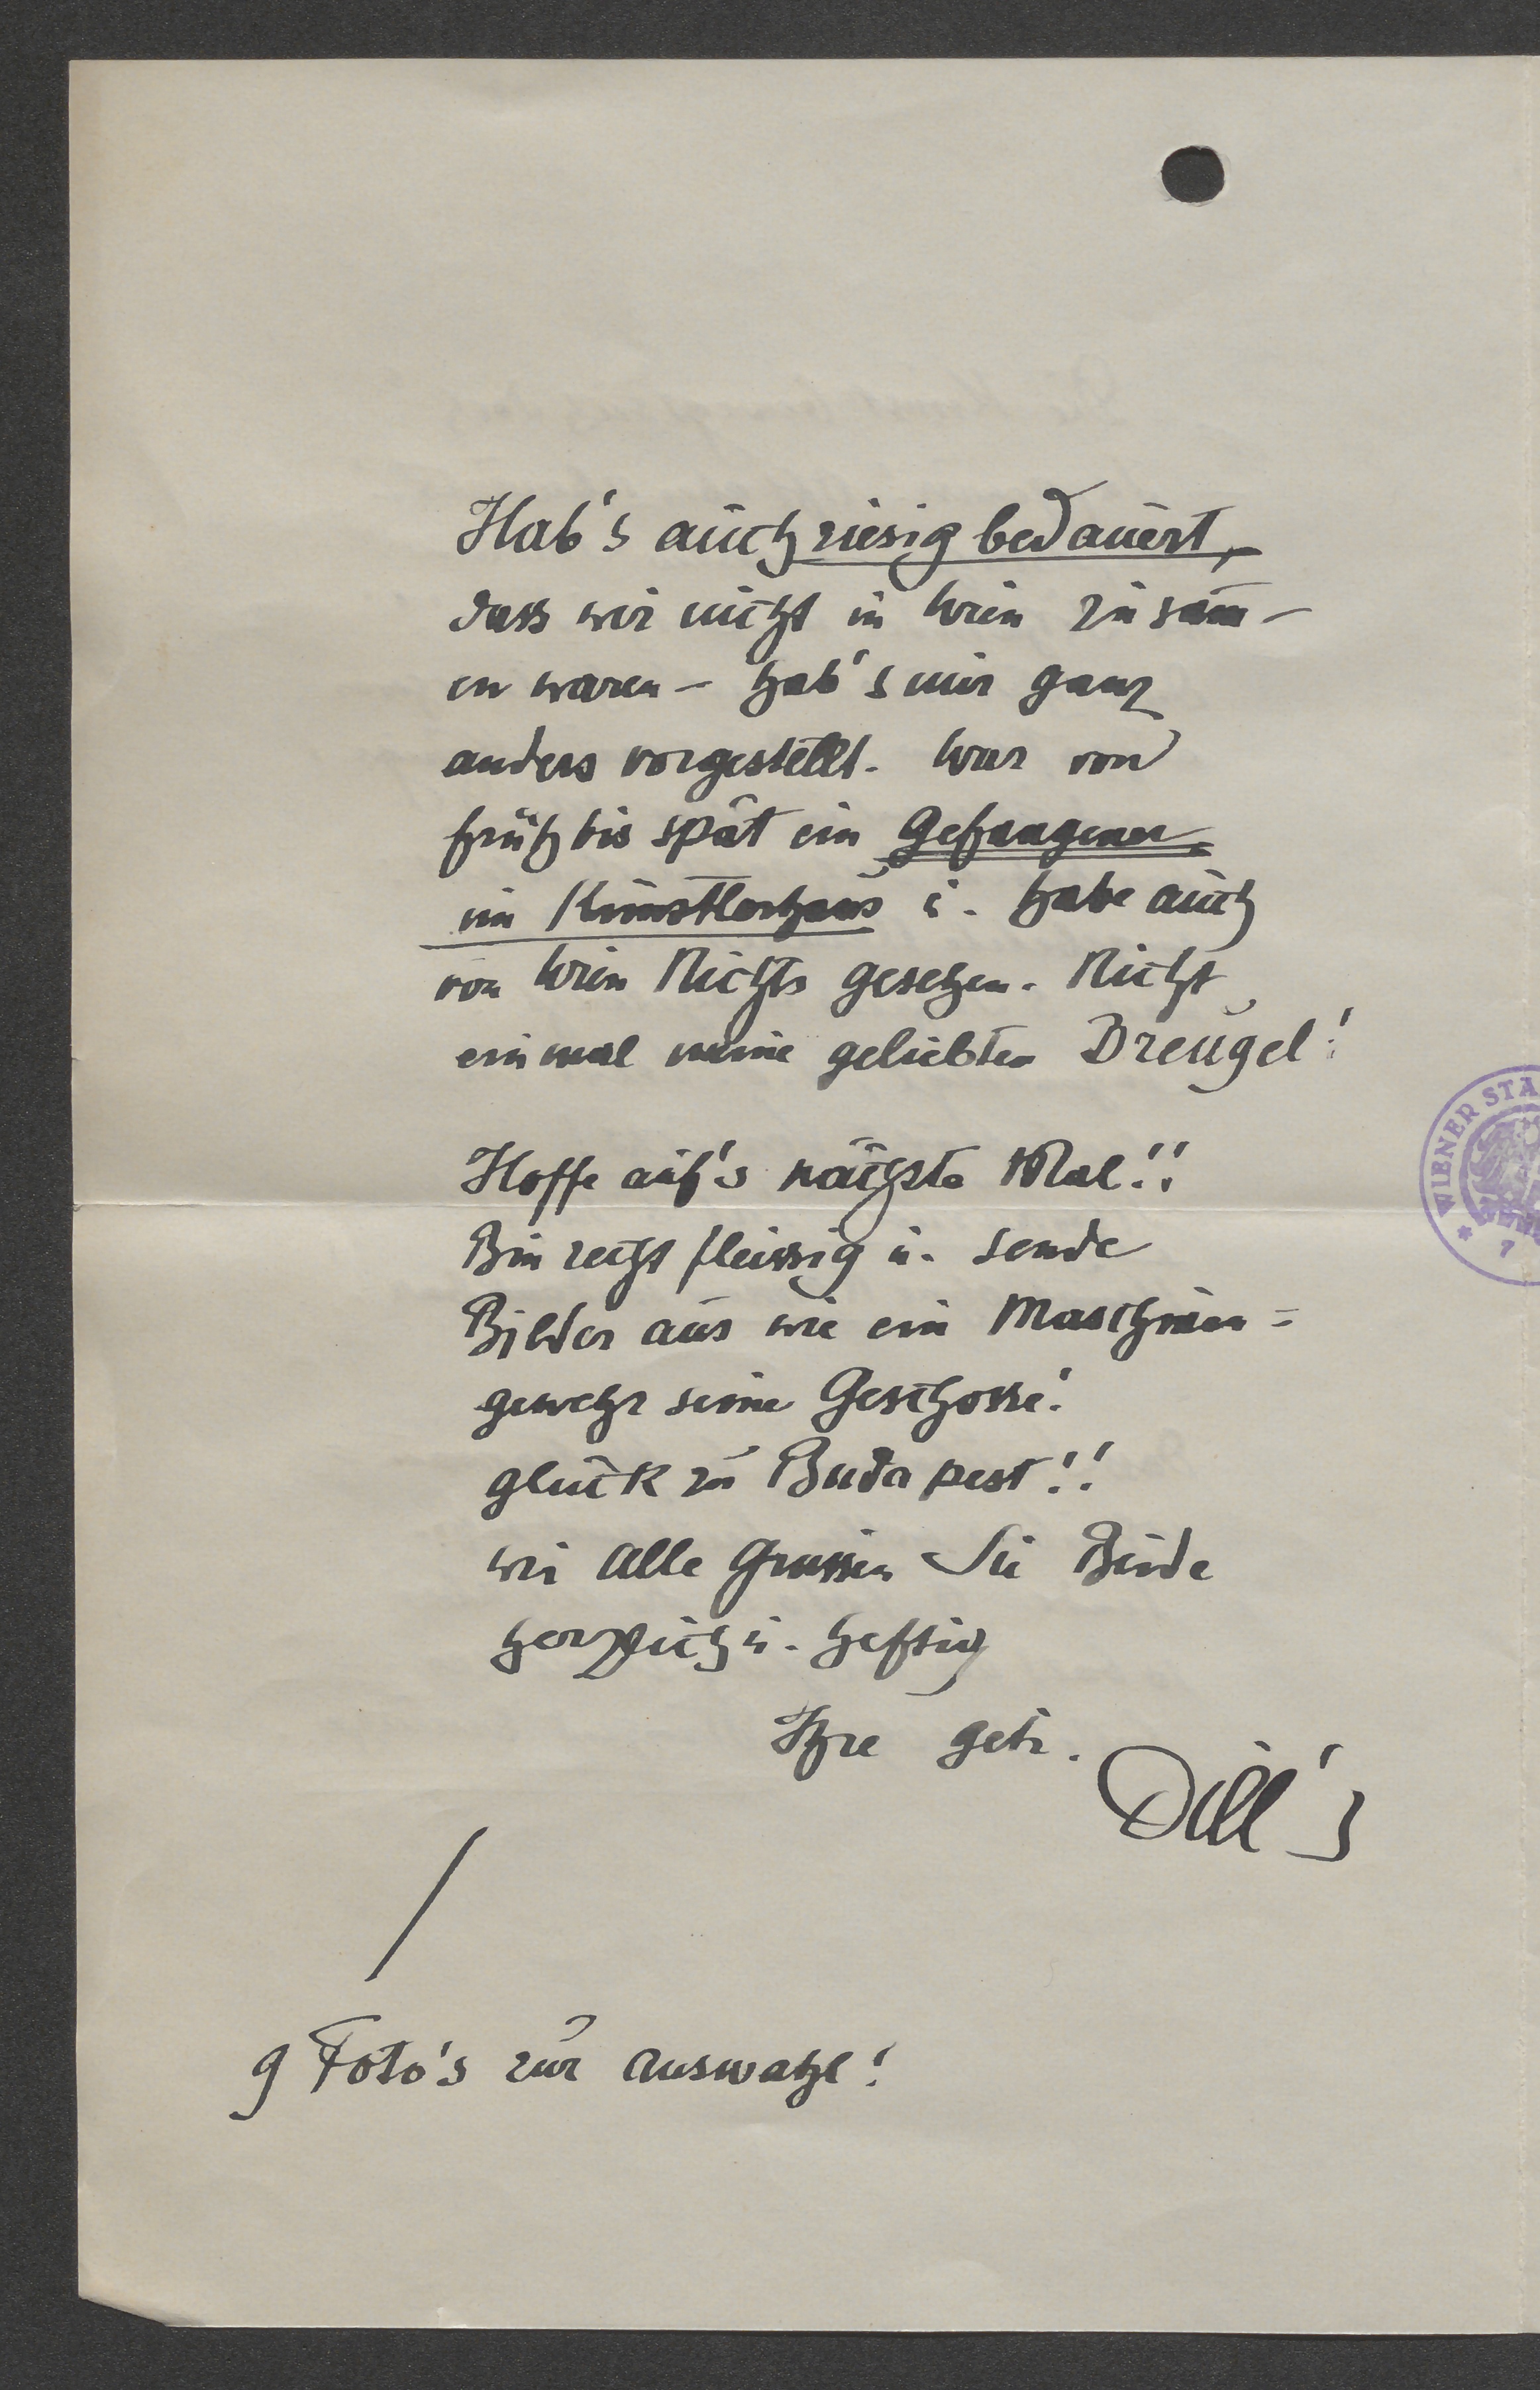 Hab's auch riesig bedauert,
dass wir nicht in Wien zusam̅-
en waren - hab's mir ganz
anders vorgestellt. War von
früh bis spät ein Gefangener
im Künstlerhaus u. habe auch
von Wien Nichts gesehen. Nicht
einmal meine geliebten Breugel!
Hoffe auf's nächste Mal!!
Bin recht fleissig u. sende
Bilder aus wie ein Maschinen=
gewehr seine Geschosse!
Glück zu Budapest!!
Wir Alle Grüssen Sie Beide
herzlich u. heftig
Ihre getr.
Dill's
9 Foto's zur Auswahl!
WIENER STA
7